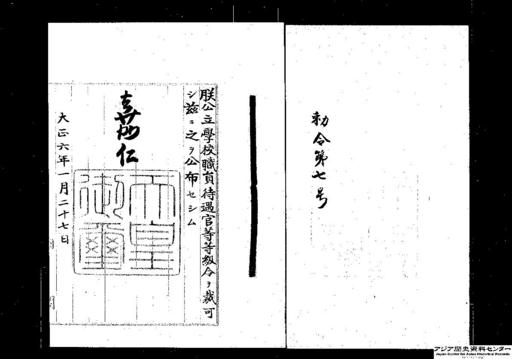 勅令第七号
朕公立學校職員待遇官等等級令ヲ裁可
シ茲ニ之ヲ公布セシム
嘉仁
天皇御璽
大正六年一月二十七日
アジア歴史資料センター
Japan Center for Asian Historical Records